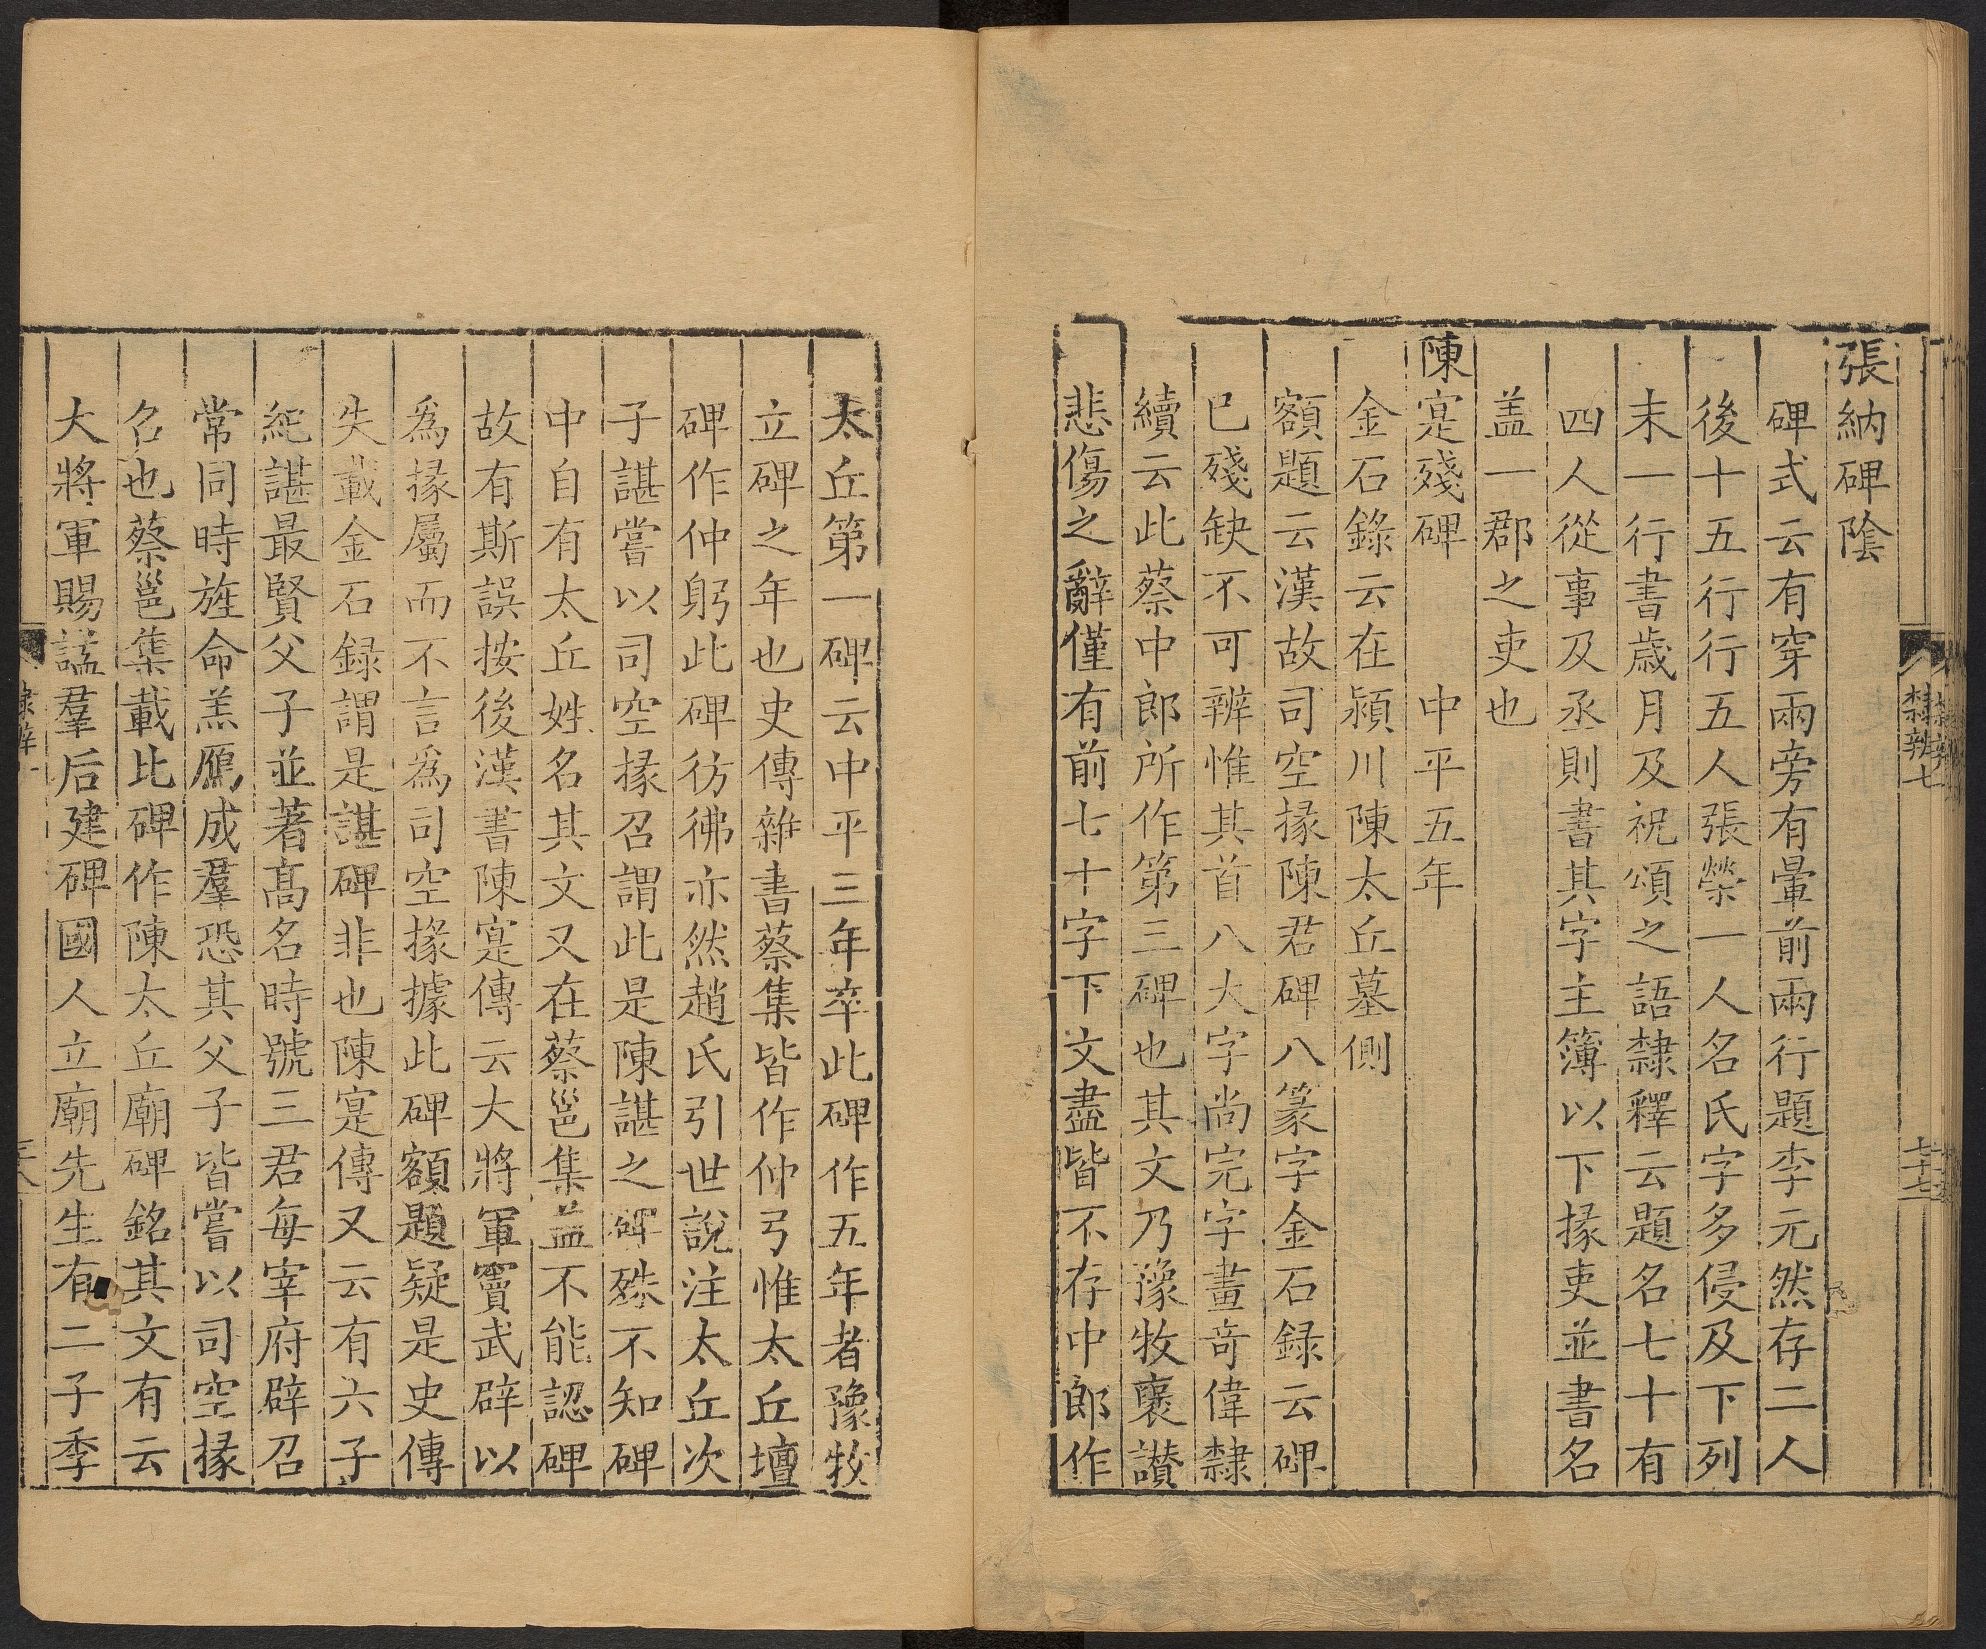 隸辨七
七十七
張納碑陰
碑式云有穿兩旁有暈前兩行題李元然存二人
後十五行行五人張榮一人名氏字多侵及下列
末一行書歲月及祝頌之語隸釋云題名七十有
四人從事及丞則書其字主簿以下掾吏並書名
盖一郡之吏也
陳寔殘碑 中平五年
金石錄云在潁川陳太丘墓側
額題云漢故司空掾陳君碑八篆字金石録云碑
已殘缺不可辨惟其首八大字尚完字畫奇偉隸
續云此蔡中郎所作第三碑也其文乃豫牧襃讃
悲傷之辭僅有前七十字下文盡皆不存中郎作
太丘第一碑云中平三年卒此碑作五年者豫牧
立碑之年也史傳雜書蔡集皆作仲弓惟太丘壇
碑作仲躬此碑彷彿亦然趙氏引世說注太丘次
子諶嘗以司空掾召謂此是陳諶之碑殊不知碑
中自有太丘姓名其文又在蔡邕集益不能認碑
故有斯誤按後漢書陳寔傳云大將軍竇武辟以
爲掾屬而不言爲司空掾據此碑額題疑是史傳
失載金石録謂是諶碑非也陳寔傳又云有六子
紀諶最賢父子並著高名時號三君每宰府辟召
常同時旌命羔鴈成羣恐其父子皆嘗以司空掾
名也蔡邕集載此碑作陳太丘廟碑銘其文有云
大將軍賜諡羣后建碑國人立廟先生有二子季